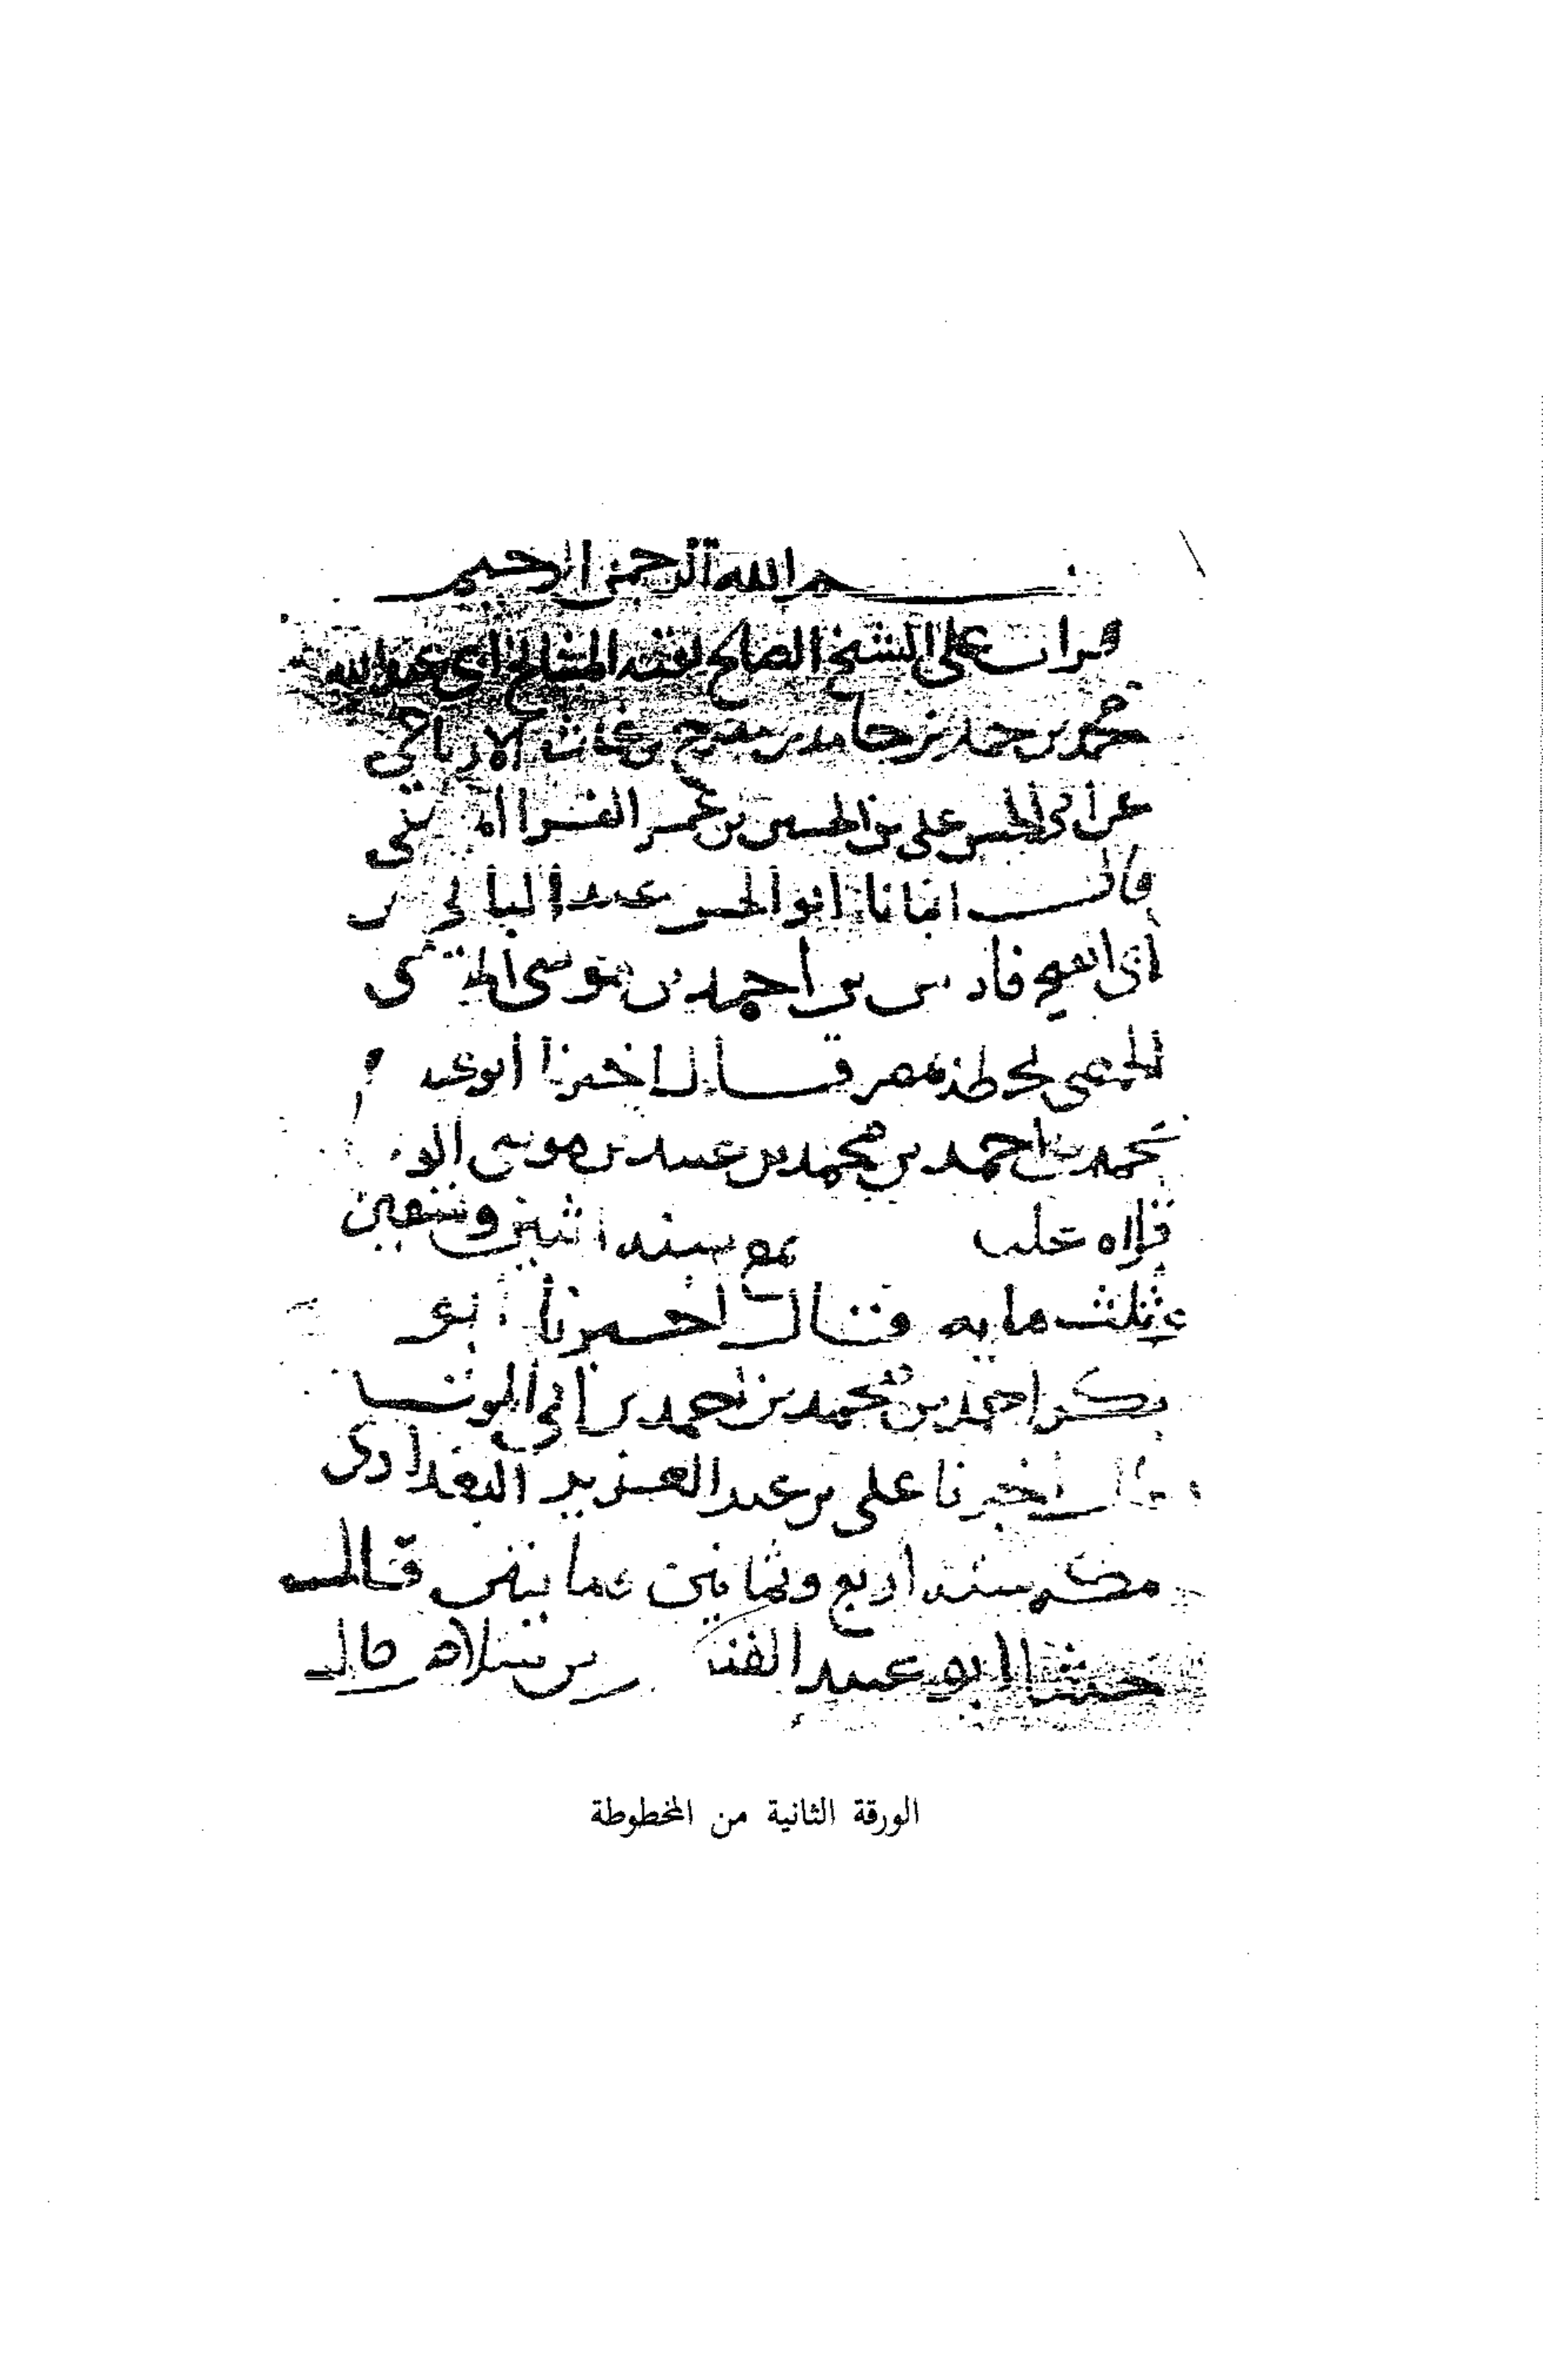 بسم الله الرحمن الرحيم
قرات على الشيخ الصالح المشايخ ابي عبد الله
محمد بن حمد بن حامد بن مفرج بن غياث الارتاحي
عن ابي الحسن علي بن الحسين بن عمر الفرا
قال انبانا ابو الحسن عبد الباقي بن
ابي الفتح فارس بن احمد بن موسى
الحمصي بمصر قال اخبرنا ابو عبد
محمد بن احمد بن محمد بن عبيد بن موسى
قراه عليه سنه اثنين وتسعين
وثلث مايه قال اخبرنا ابو
بكر احمد بن محمد بن احمد بن ابي الموت
قال اخبرنا علي بن عبد العزيز البغدادي
بمكه سنه اربع وثمانين ومايتين قال
حدثنا ابو عبيد القسم بن سلام قال
الورقة الثانية من المخطوطة